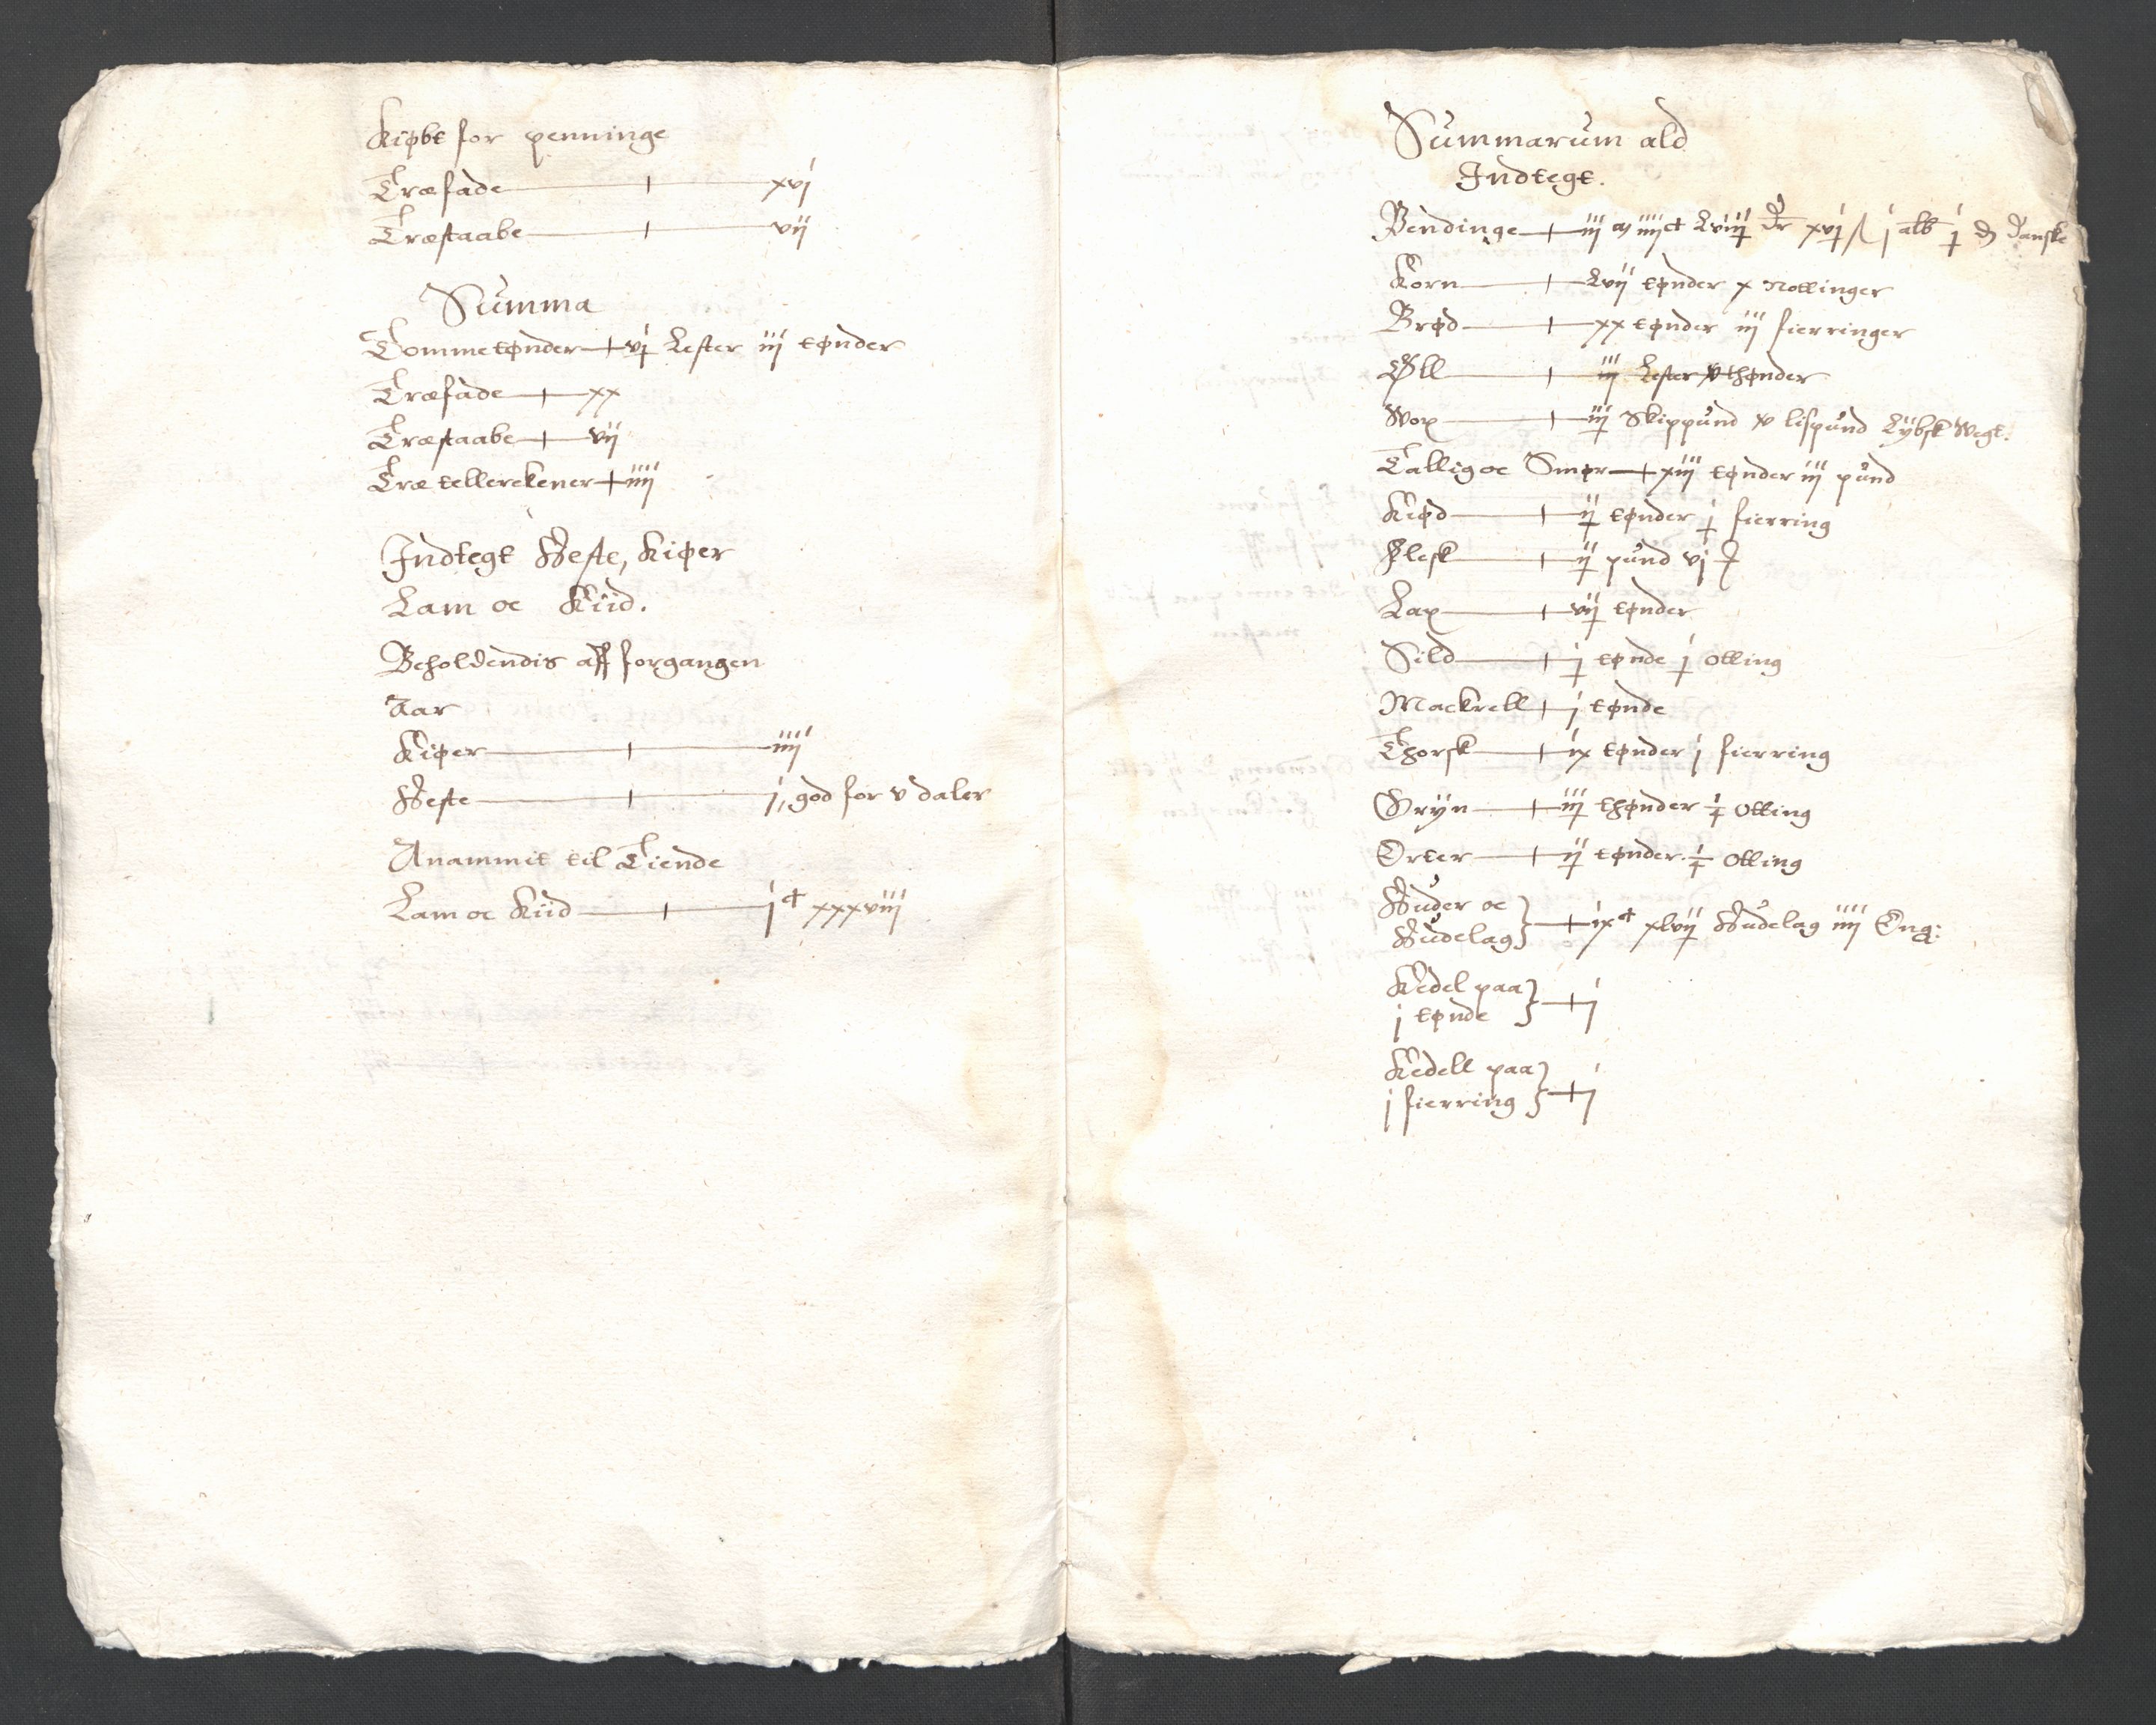 Kiøbt for penninge
Træfade + xvj
Træstaabe + vij
Summa
Tomme tønder + vj Lester iij tønder
Træfade + xx
Træstaabe + vij
Træ tellerckener + iiij
Indtegt Heste, Kiøer
Lam oc Kiid.
Beholdendis aff forgangen
Aar
Kiøer + iiij
Heste + j, god for v daler
Anammit til Tiende
Lam oc Kiid + jᶜ xxxviij
Summarum ald
Indtegt.
Pendinge + iij ... iiijᶜ Lviij dr xvj ß j alb j d Danske
Korn + Lvij tønder x Nottinger
Brød + xx tønder iij fierringer
Øll + iij Lester x thønder
Wox + iij Skippund xv lispund Lybsk Wegt.
Tallig oc Smør + xiij tønder iij pund
Kiød + ij tønder j fierring
Flesk + ij pund vj
Lax + vij tønder
Sild + j tønde j Otting
Mackrell + j tønde
Thorsk + ix tønder j fierring
Gryn + iij thønder j Otting
Erter + ij tønder j Otting
Huder oc
Hudelag } + ixᶜ xlvij Hudelag iiij Eng:
Kedel paa
j tønde } + j
Kedell paa
j fierring } + j